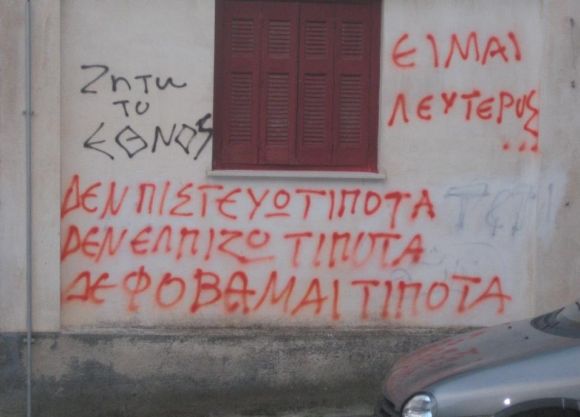 Ζητω
το
ΕΘΝΟΣ
ΕΙΜΑΙ
ΛΕΥΤΕΡΟΣ
...
ΔΕΝ ΠΙΣΤΕΥΩ ΤΙΠΟΤΑ
ΔΕΝ ΕΛΠΙΖΩ ΤΙΠΟΤΑ
ΔΕ ΦΟΒΑΜΑΙ ΤΙΠΟΤΑ